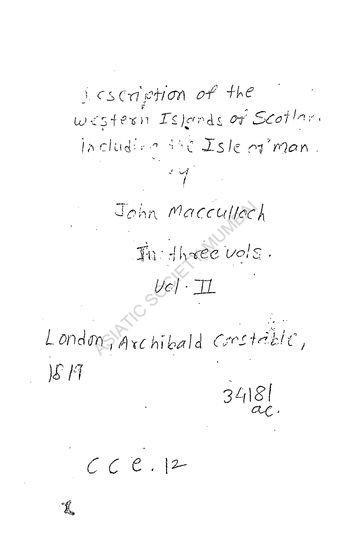 Description of the
western Islands of Scotlan.
including the Isle of man.
by
John Macculloch
In three vols.
Vol. II
London, Archibald Constable,
1819
34181
ac.
C C e . 12
ASIATIC SOCIETY MUMBAI